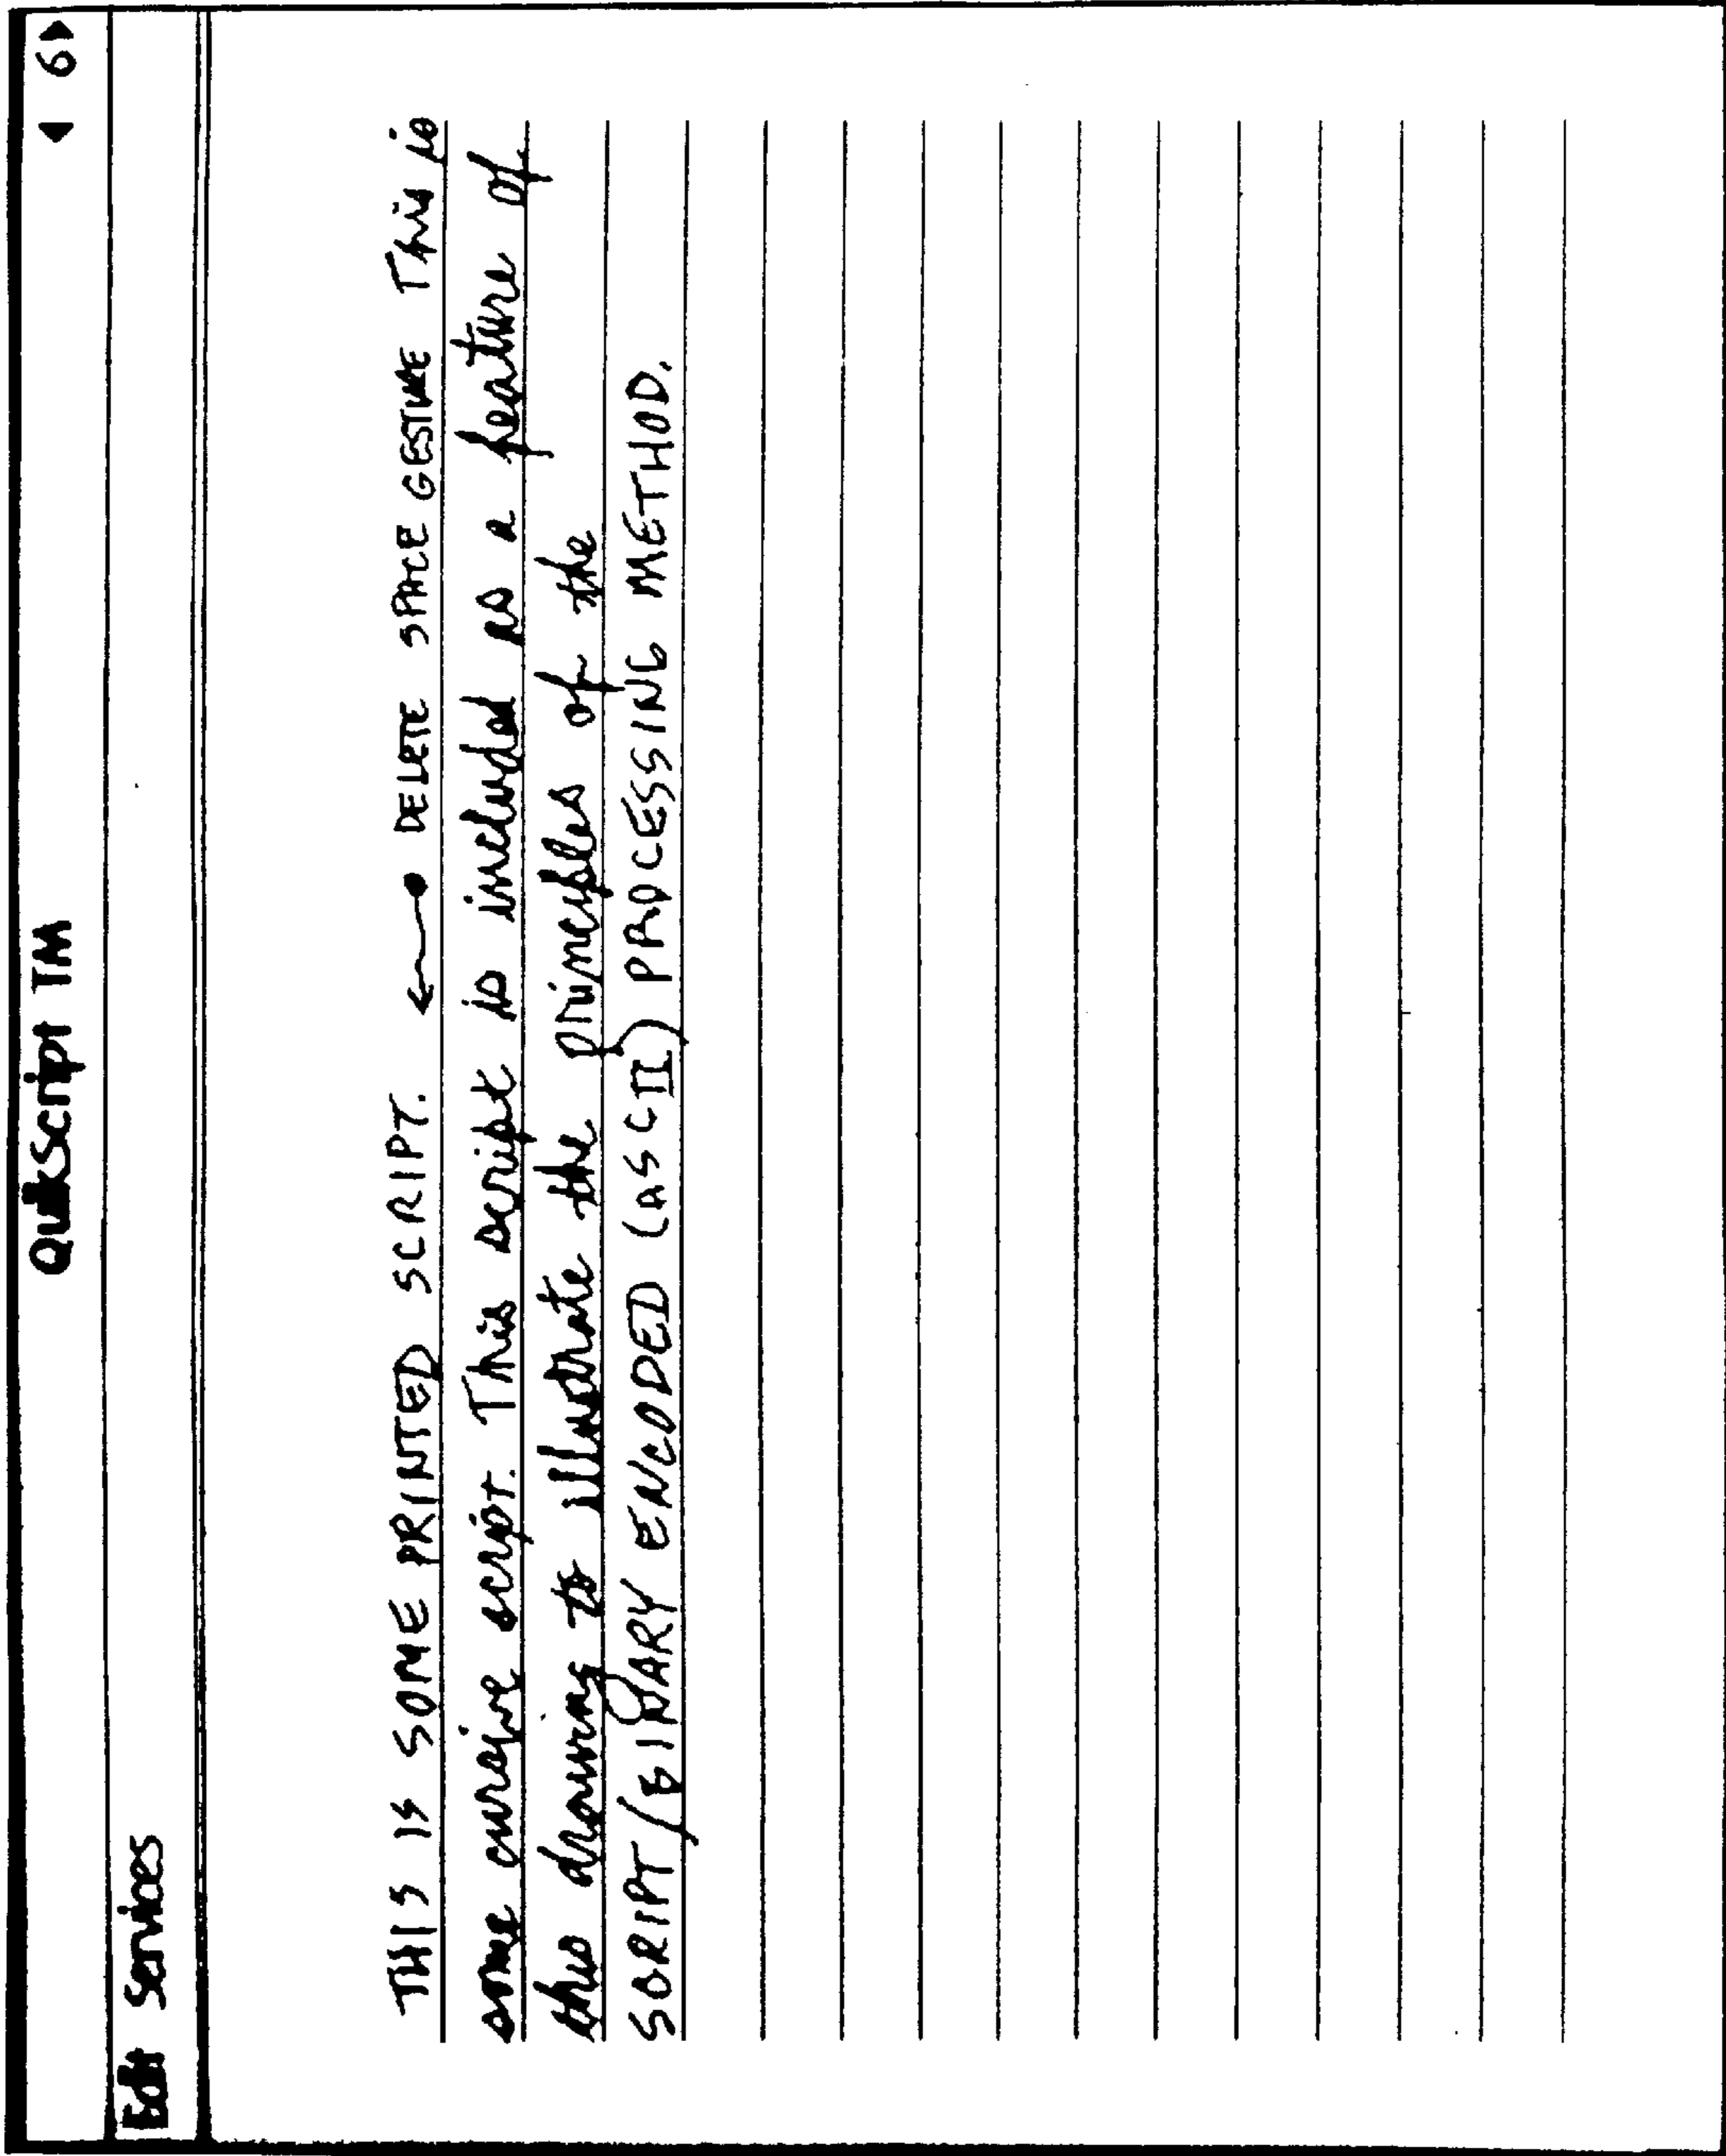 QuikScript TM ◄ 6►
Edit Services
THIS IS SOME PRINTED SCRIPT. ←● DELETE SPACE GESTURE This is
some cursive script. This script is included as a feature of
this drawing to illustrate the principles of the
SCRIPT/BINARY ENCODED (ASCII) PROCESSING METHOD.